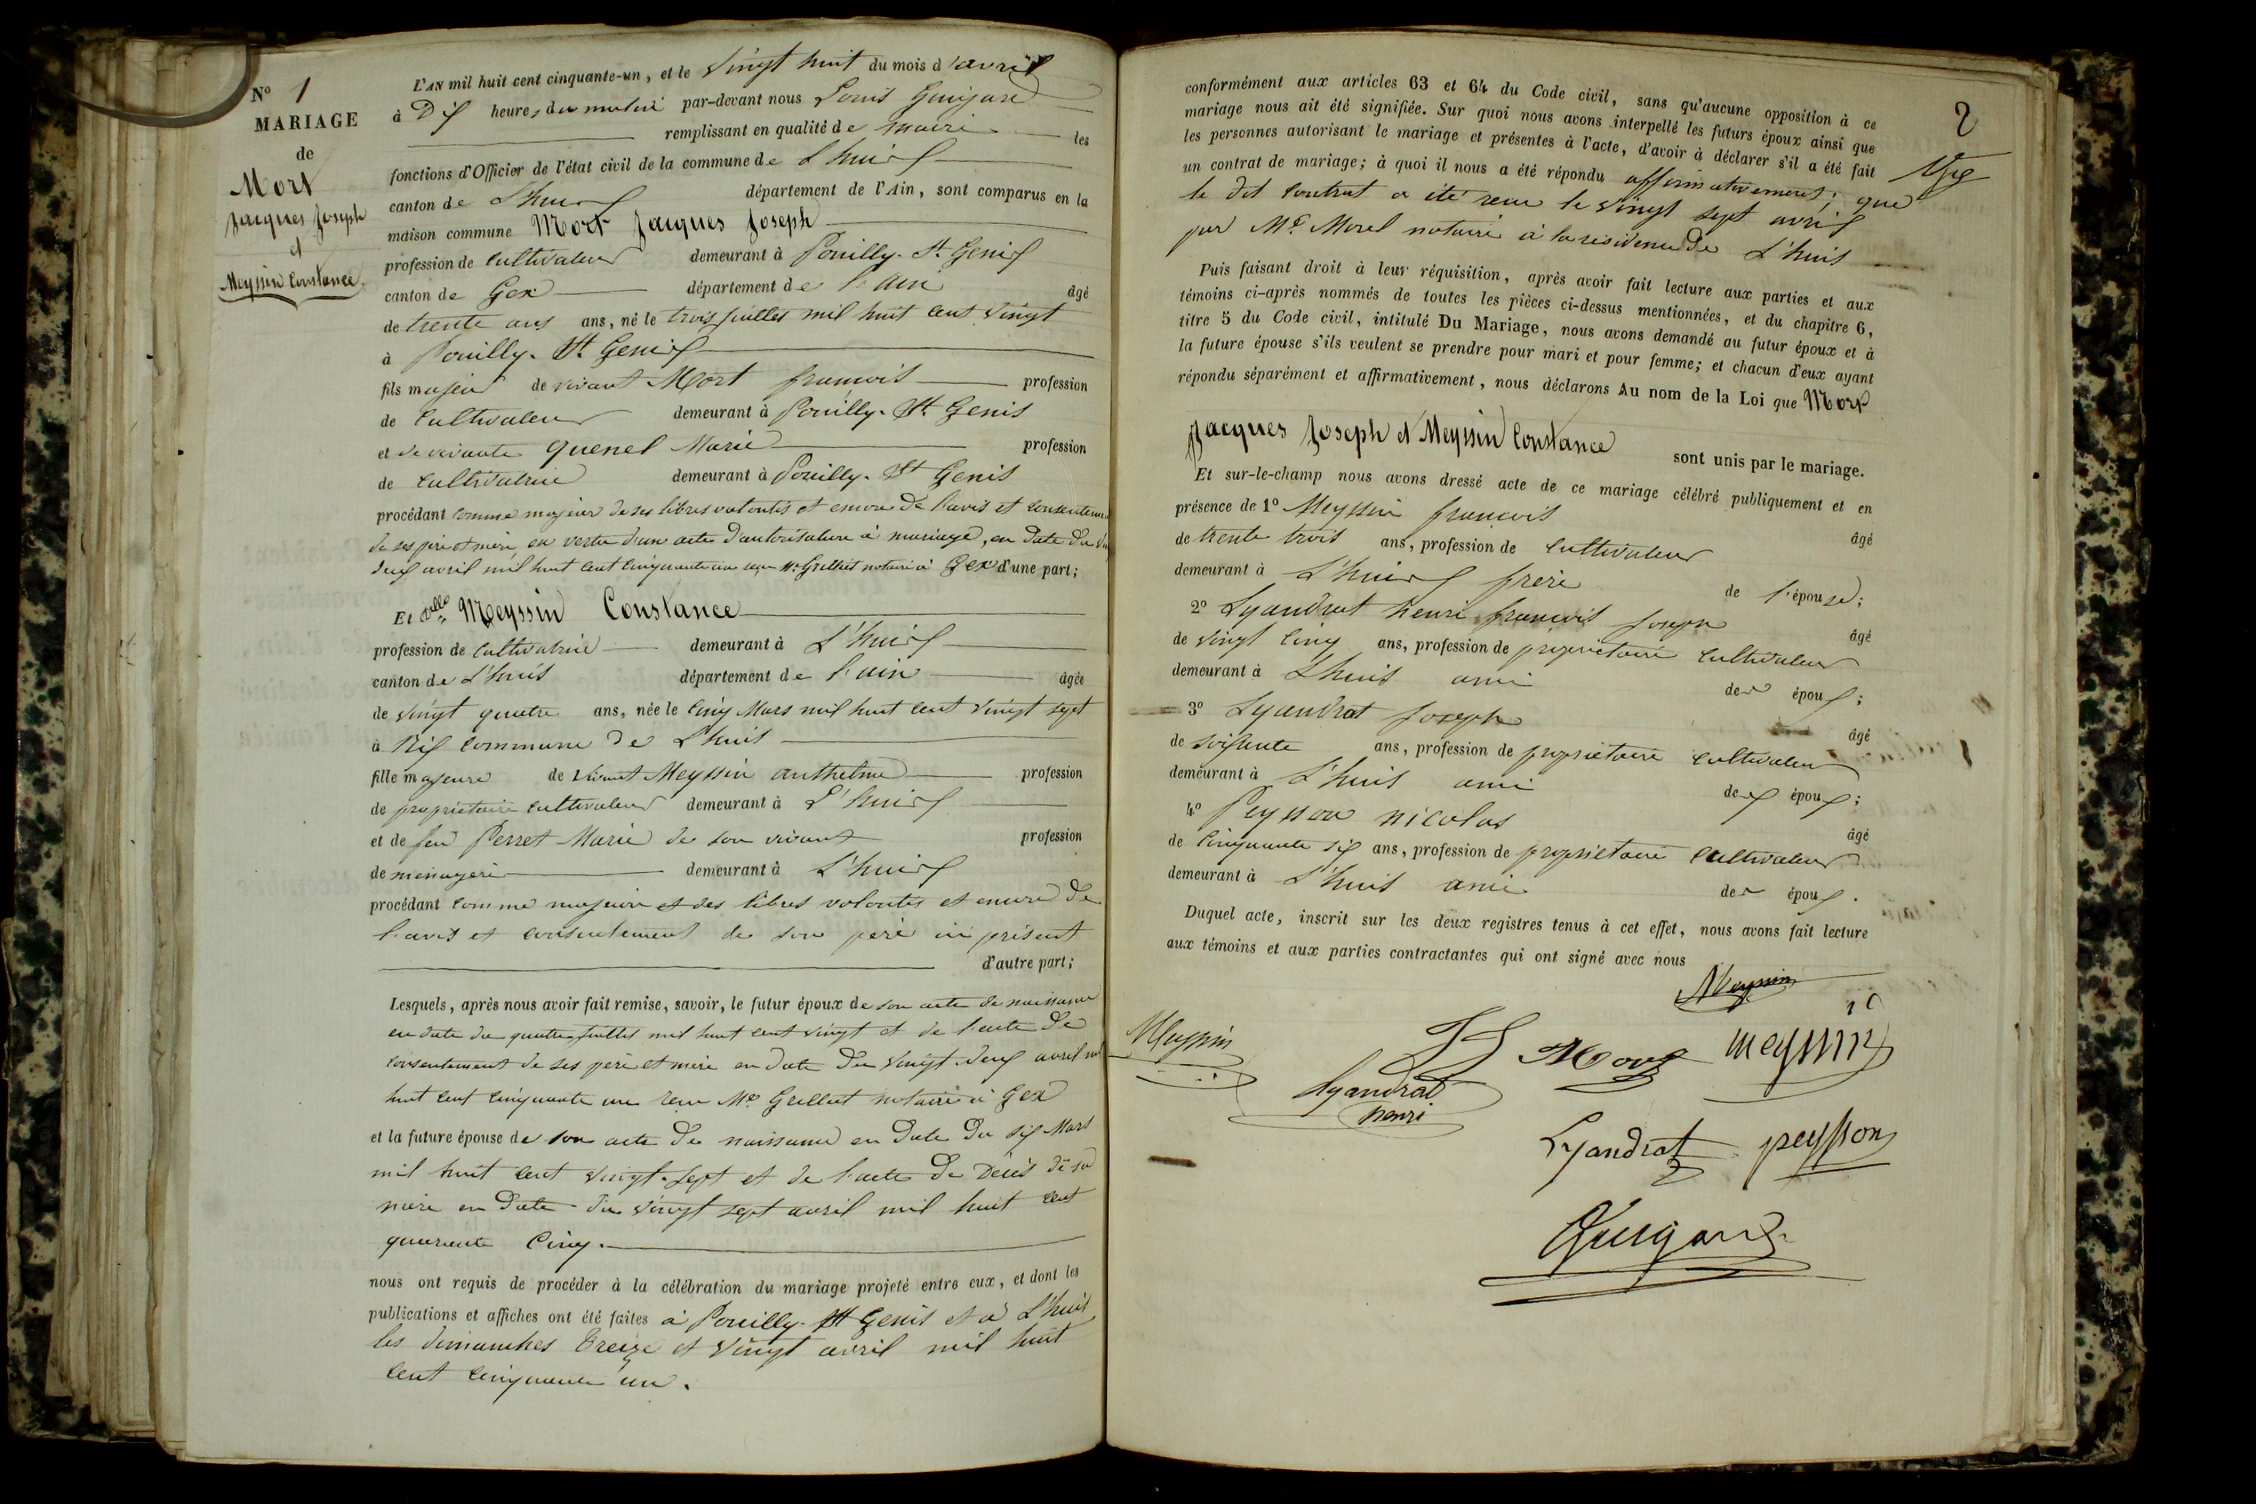 N° 1
MARIAGE
de
Mort
Jacques Joseph
et
Meyssin Constance
L'AN mil huit cent cinquante-un, et le vingt huit du mois d'avril
à Dix heures du matin par-devant nous Louis Guigard
remplissant en qualité de maire les
fonctions d'Officier de l'état civil de la commune de L'huis
canton de L'huis département de l'Ain, sont comparus en la
maison commune Mort Jacques Joseph
profession de Cultivateur demeurant à Pouilly-St Genis
canton de Gex département de l'ain âgé
de trente ans ans, né le trois juillet mil huit cent vingt
à Pouilly-St Genis
fils majeur de vivant Mort françois profession
de Cultivateur demeurant à Pouilly-St Genis
et de vivante Quenel Marie profession
de Cultivatrice demeurant à Pouilly-St Genis
procédant comme majeur de ses libres volontés et encore de l'avis et consentement
de ses père et mère, en vertu d'un acte d'autorisation à mariage, en date du vingt
deux avril mil huit cent cinquante un reçu Me Grilliet notaire à Gex d'une part;
Et delle Meyssin Constance
profession de Cultivatrice demeurant à L'huis
canton de L'huis département de l'ain âgée
de vingt quatre ans, née le cinq Mars mil huit cent vingt sept
à Rix commune de L'huis
fille majeure de vivant Meyssin anthelme profession
de propriétaire cultivateur demeurant à L'huis
et de feu Perret Marie de son vivant profession
de menagère demeurant à L'huis
procédant comme majeure et ses libres volontés et encore de
l'avis et consentement de son père ici présent
d'autre part;
Lesquels, après nous avoir fait remise, savoir, le futur époux de son acte de naissance
en date du quatre juillet mil huit cent vingt et de l'acte de
consentement de ses père et mère en date du vingt deux avril mil
huit cent cinquante un reçu Me Grilliet notaire à Gex
et la future épouse de son acte de naissance en date du six Mars
mil huit cent vingt-sept et de l'acte de Décès de sa
mère en date du vingt sept avril mil huit cent
quarante cinq.
nous ont requis de procéder à la célébration du mariage projeté entre eux, et dont les
publications et affiches ont été faites à Pouilly-St Genis et à L'huis
les dimanches treize et vingt avril mil huit
cent cinquante un.
2
conformément aux articles 63 et 64 du Code civil, sans qu'aucune opposition à ce
mariage nous ait été signifiée. Sur quoi nous avons interpellé les futurs époux ainsi que
les personnes autorisant le mariage et présentes à l'acte, d'avoir à déclarer s'il a été fait
un contrat de mariage; à quoi il nous a été répondu affirmativement; que
le dit contrat a été reçu le vingt sept avril
par Me Morel notaire à la résidence de L'huis
Puis faisant droit à leur réquisition, après avoir fait lecture aux parties et aux
témoins ci-après nommés de toutes les pièces ci-dessus mentionnées, et du chapitre 6,
titre 5 du Code civil, intitulé Du Mariage, nous avons demandé au futur époux et à
la future épouse s'ils veulent se prendre pour mari et pour femme; et chacun d'eux ayant
répondu séparément et affirmativement, nous déclarons Au nom de la Loi que Mort
Jacques Joseph et Meyssin Constance sont unis par le mariage.
Et sur-le-champ nous avons dressé acte de ce mariage célébré publiquement et en
présence de 1° Meyssin françois âgé
de trente trois ans, profession de cultivateur
demeurant à L'huis frère de l'épouse;
2° Lyandrat henri françois joseph âgé
de vingt cinq ans, profession de propriétaire cultivateur
demeurant à L'huis ami des époux;
3° Lyandrat joseph âgé
de soixante ans, profession de propriétaire cultivateur
demeurant à L'huis ami des époux;
4° Peysson nicolas âgé
de cinquante six ans, profession de propriétaire cultivateur
demeurant à L'huis ami des époux.
Duquel acte, inscrit sur les deux registres tenus à cet effet, nous avons fait lecture
aux témoins et aux parties contractantes qui ont signé avec nous
Meyssin
Meyssin
Mort
meyssin
Lyandrat
henri
Lyandrat
peysson
Guigard